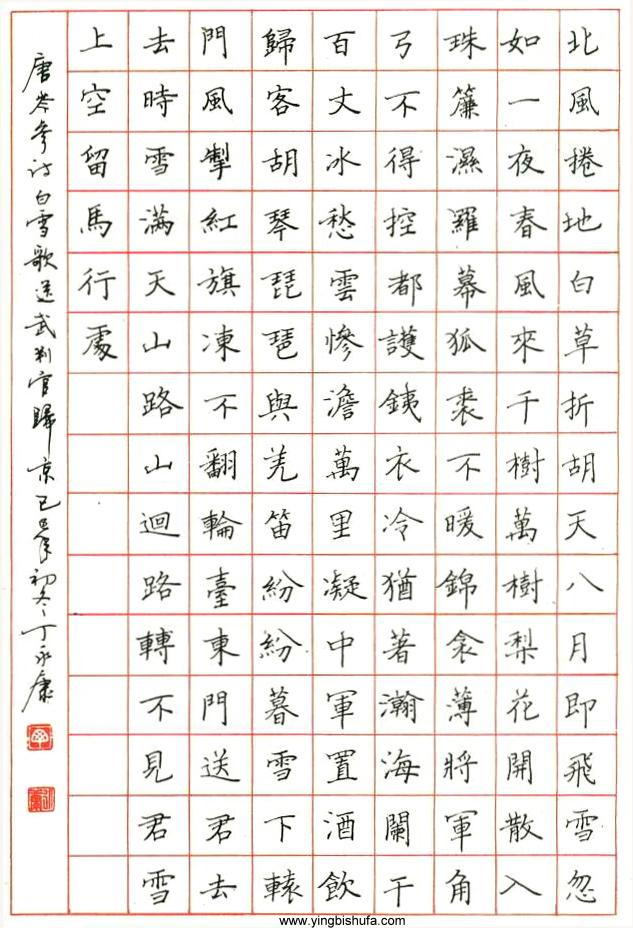 北風捲地白草折胡天八月即飛雪忽
如一夜春風來千樹萬樹梨花開散入
珠簾濕羅幕狐裘不暖錦衾薄將軍角
弓不得控都護銕衣冷猶著瀚海闌干
百丈冰愁雲慘澹萬里凝中軍置酒飲
歸客胡琴琵琶與羌笛紛紛暮雪下轅
門風掣紅旗凍不翻輪臺東門送君去
去時雪满天山路山迴路轉不見君雪
上空留馬行處
唐岑參詩白雪歌送武判官歸京己年初冬丁永康
www.yingbishufa.com